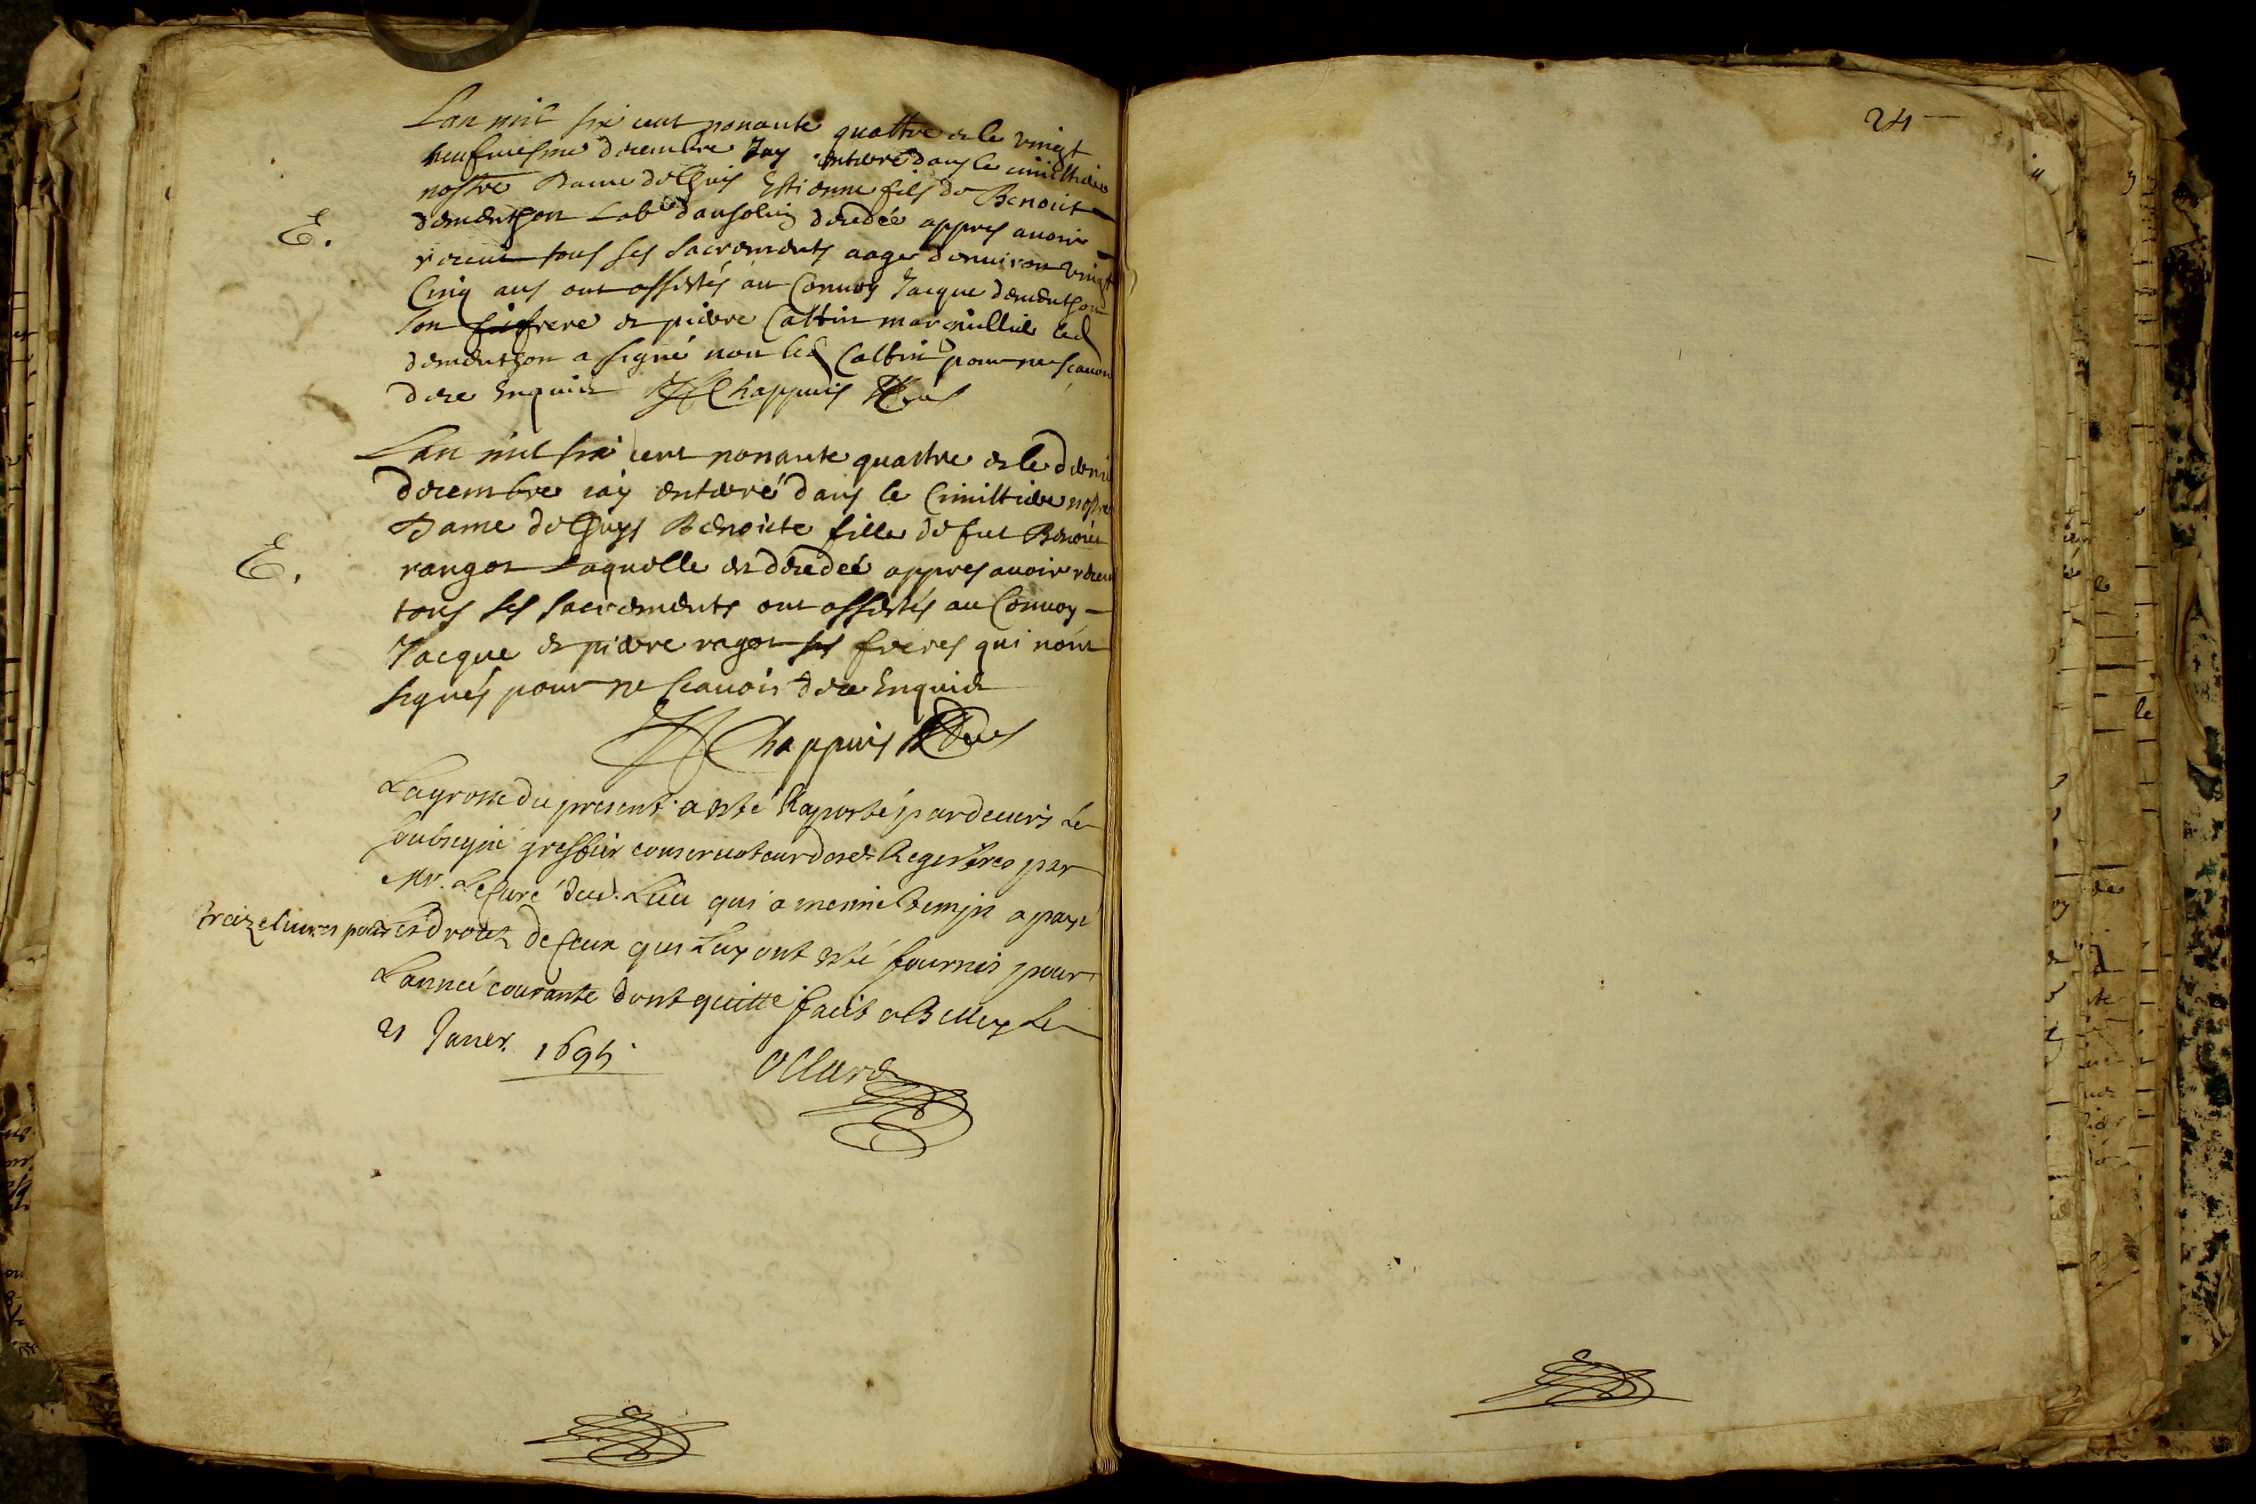 Lan mil six cent nonante quattre et le vingt
neufuiesme decembre Jay enterré dans le cimiltiere
nostre Dame de Estienne fils de Benoict
dementhon Lab^r dansolin decedée appres auoir
E.
receu tous ses sacrements aagé denuiron vingt
Cinq ans ont assistés au Conuoy Jacque dementhon
son frere et pierre Cattin marguillié led
dementhon a signé non led Cattin pour ne scauoir
de ce Enquis Chappuis Cure
Lan mil six cent nonante quattre et le dernier
decembre iay enterré dans le Cimiltiere nostre
Dame de Benoite fille de fut Benoict
E.
rangot Laquelle est decedée appres auoir receu
tous ses sacrements ont assistés au Conuoy
Jacque et pierre ragot ses freres qui nont
signés pour ne scauoir de ce Enquis
Chappuis Cure
La grosse du present a esté Raporté pardeuers Le
soubsigné greffier conseruateur desd Registres par
Mr. Le Curé dud. Lieu qui a mesme temps a payé
treize liures pour les droitz de ceux qui Luy ont esté fournis pour
Lannée courante dont quitte faict a Belley Le
21 Januer. 1695.
24